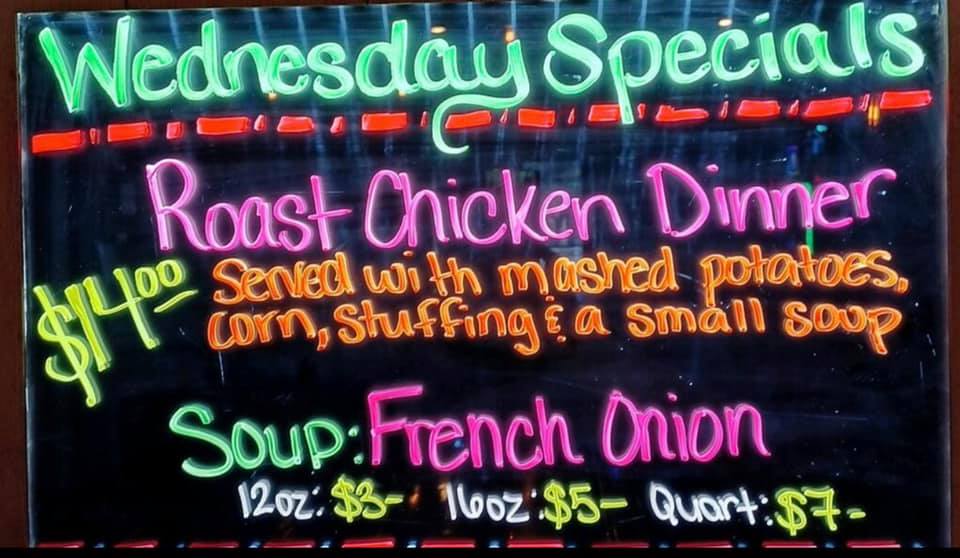 Wednesday Specials
Roast Chicken Dinner
$14.00 Served with mashed potatoes,
corn, stuffing & a small soup
Soup: French Onion
12oz: $3- 16oz: $5- Quart: $7-